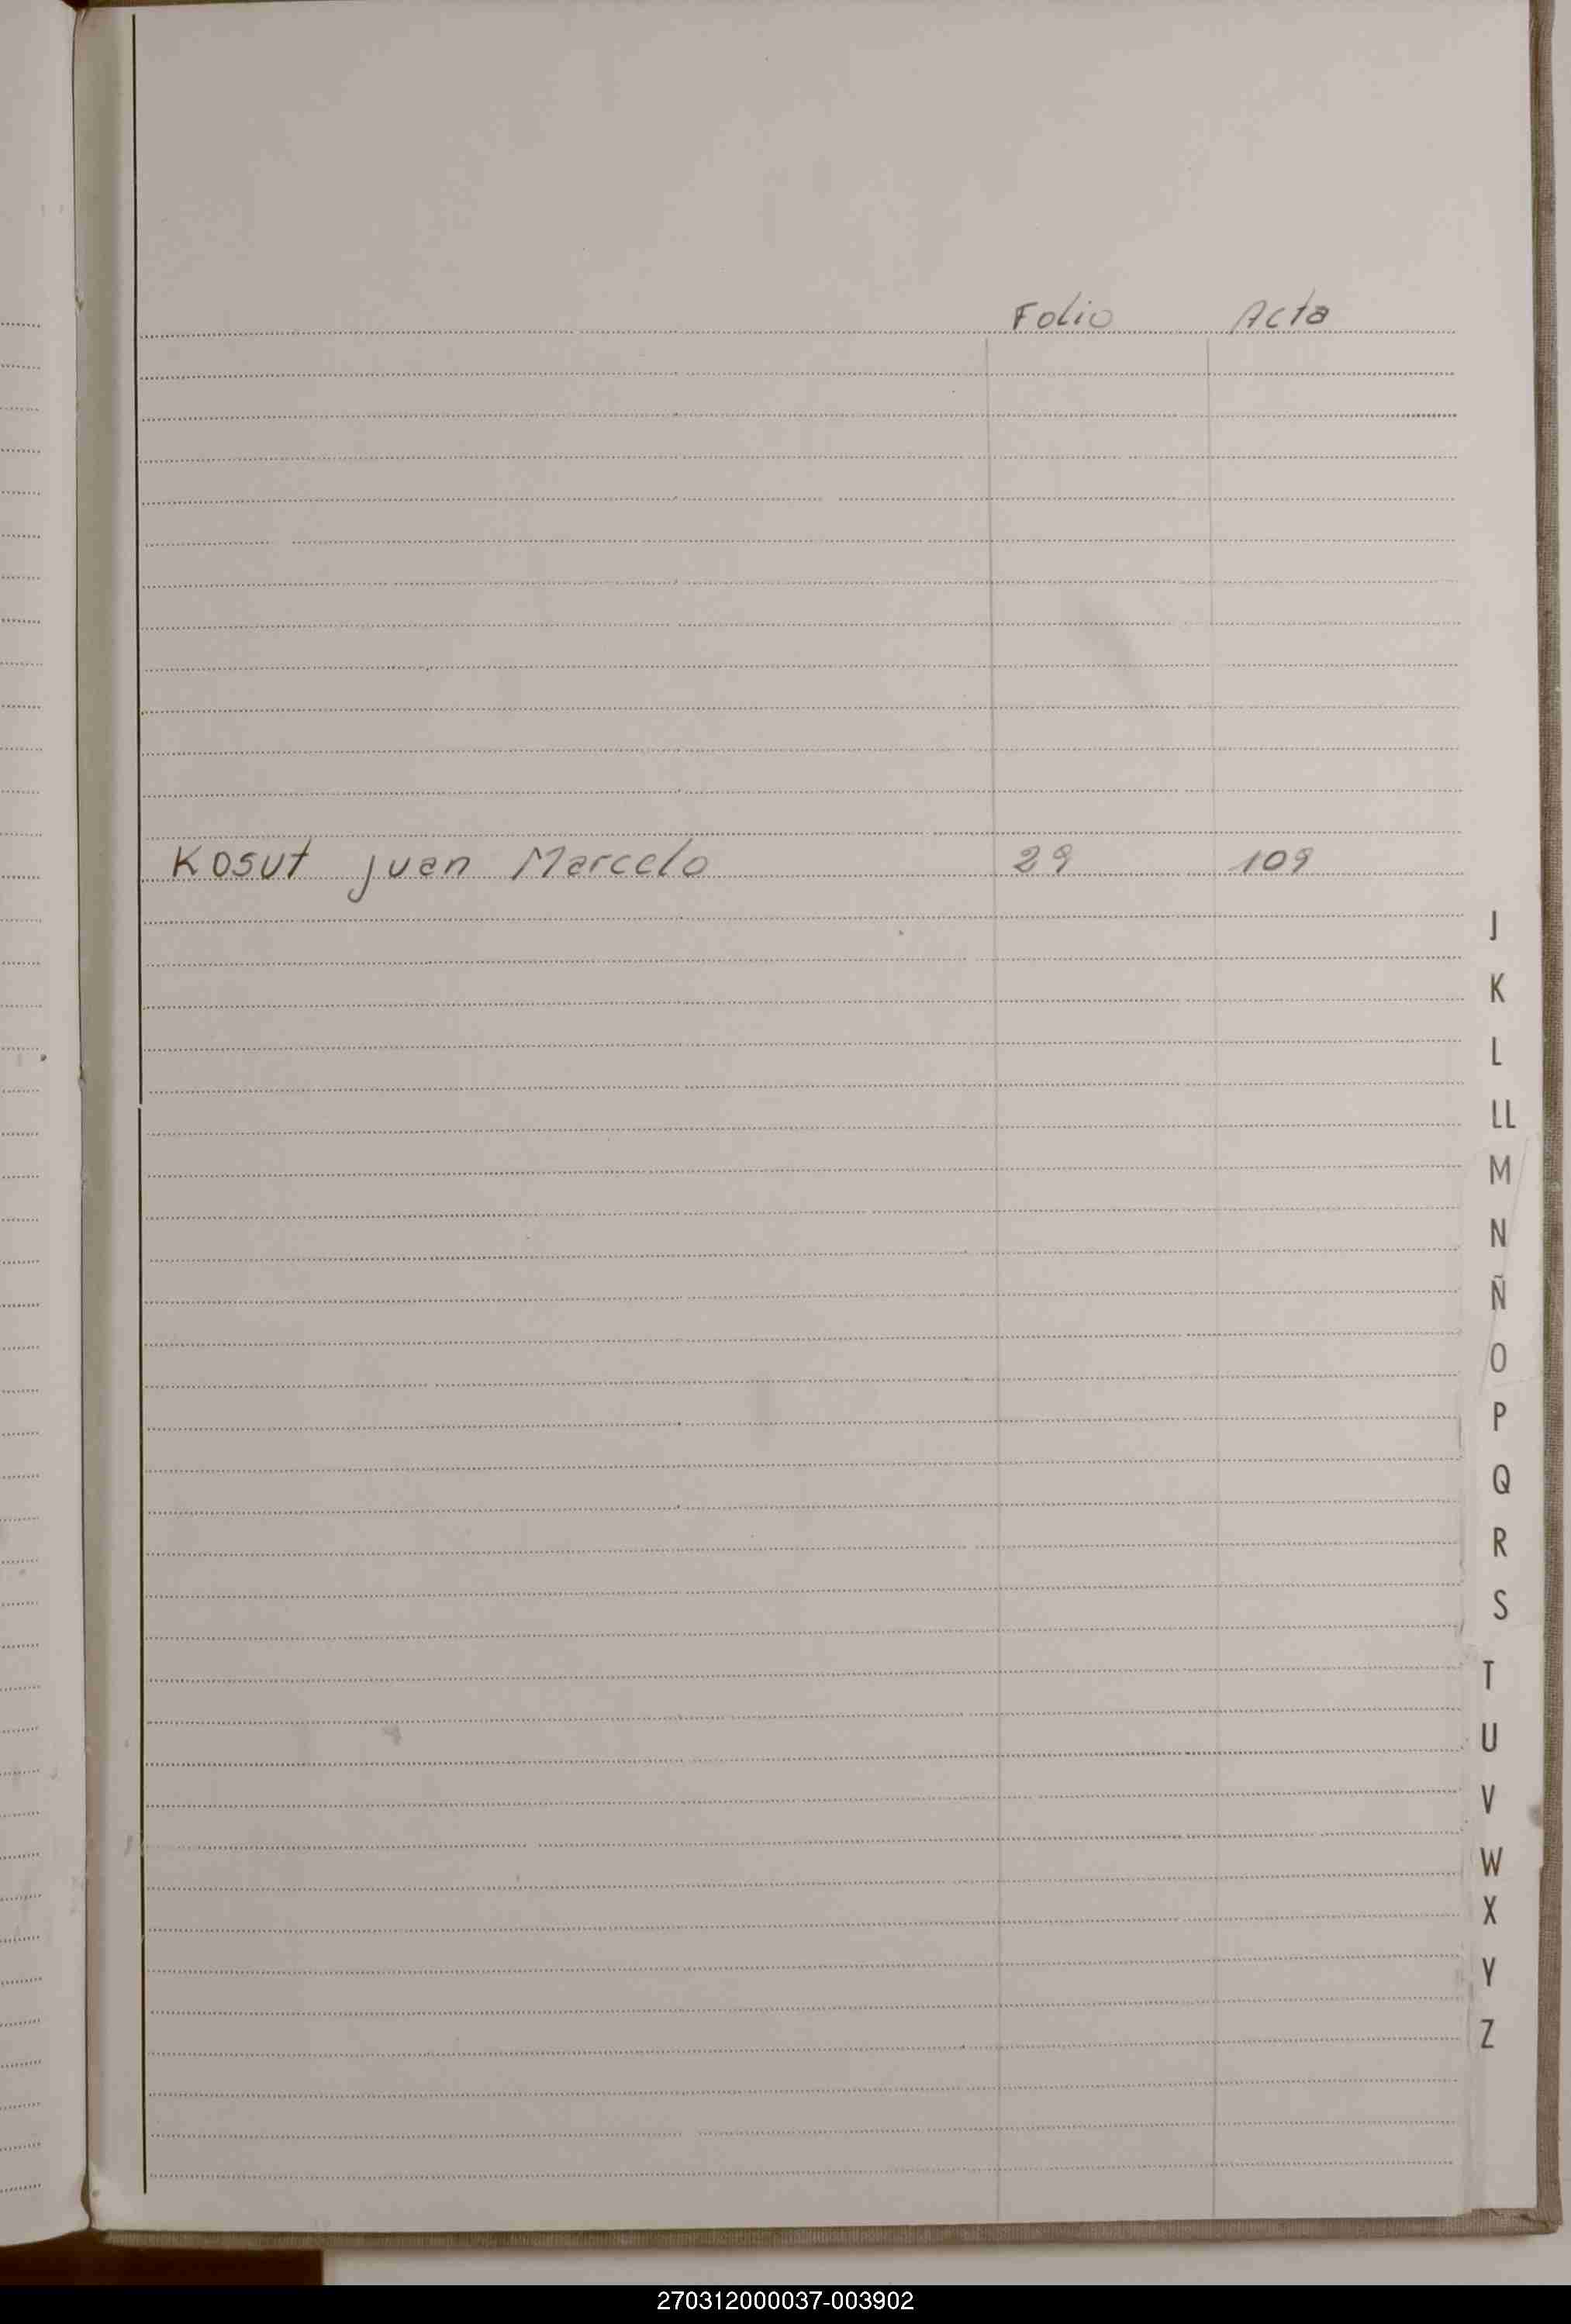 Folio Acta
Kosut Juan Marcelo 29 109
J
K
L
LL
M
N
Ñ
O
P
Q
R
S
T
U
V
W
X
Y
Z
270312000037-003902